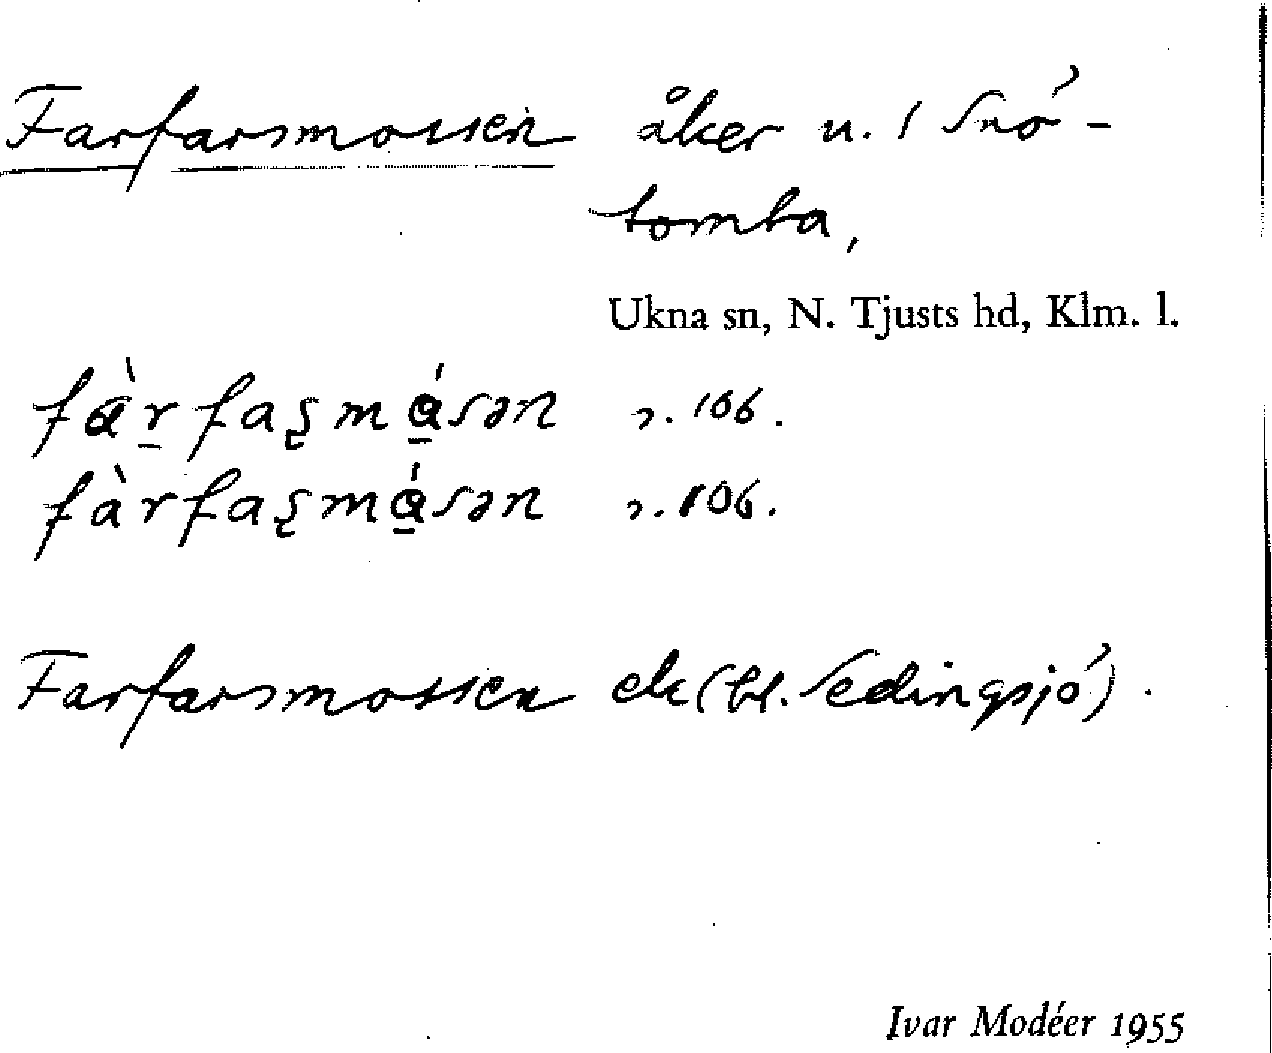 Farfarsmossen åker u. 1 Snö-
tomta,
Ukna sn, N. Tjusts hd, Klm. l.
fàr̲faʂmɑ̲́sən s. 106.
fàrfaʂmɑ̲́sən s. 106.
Farfarsmossen ek (bl. Sedingsjö).
Ivar Modéer 1955